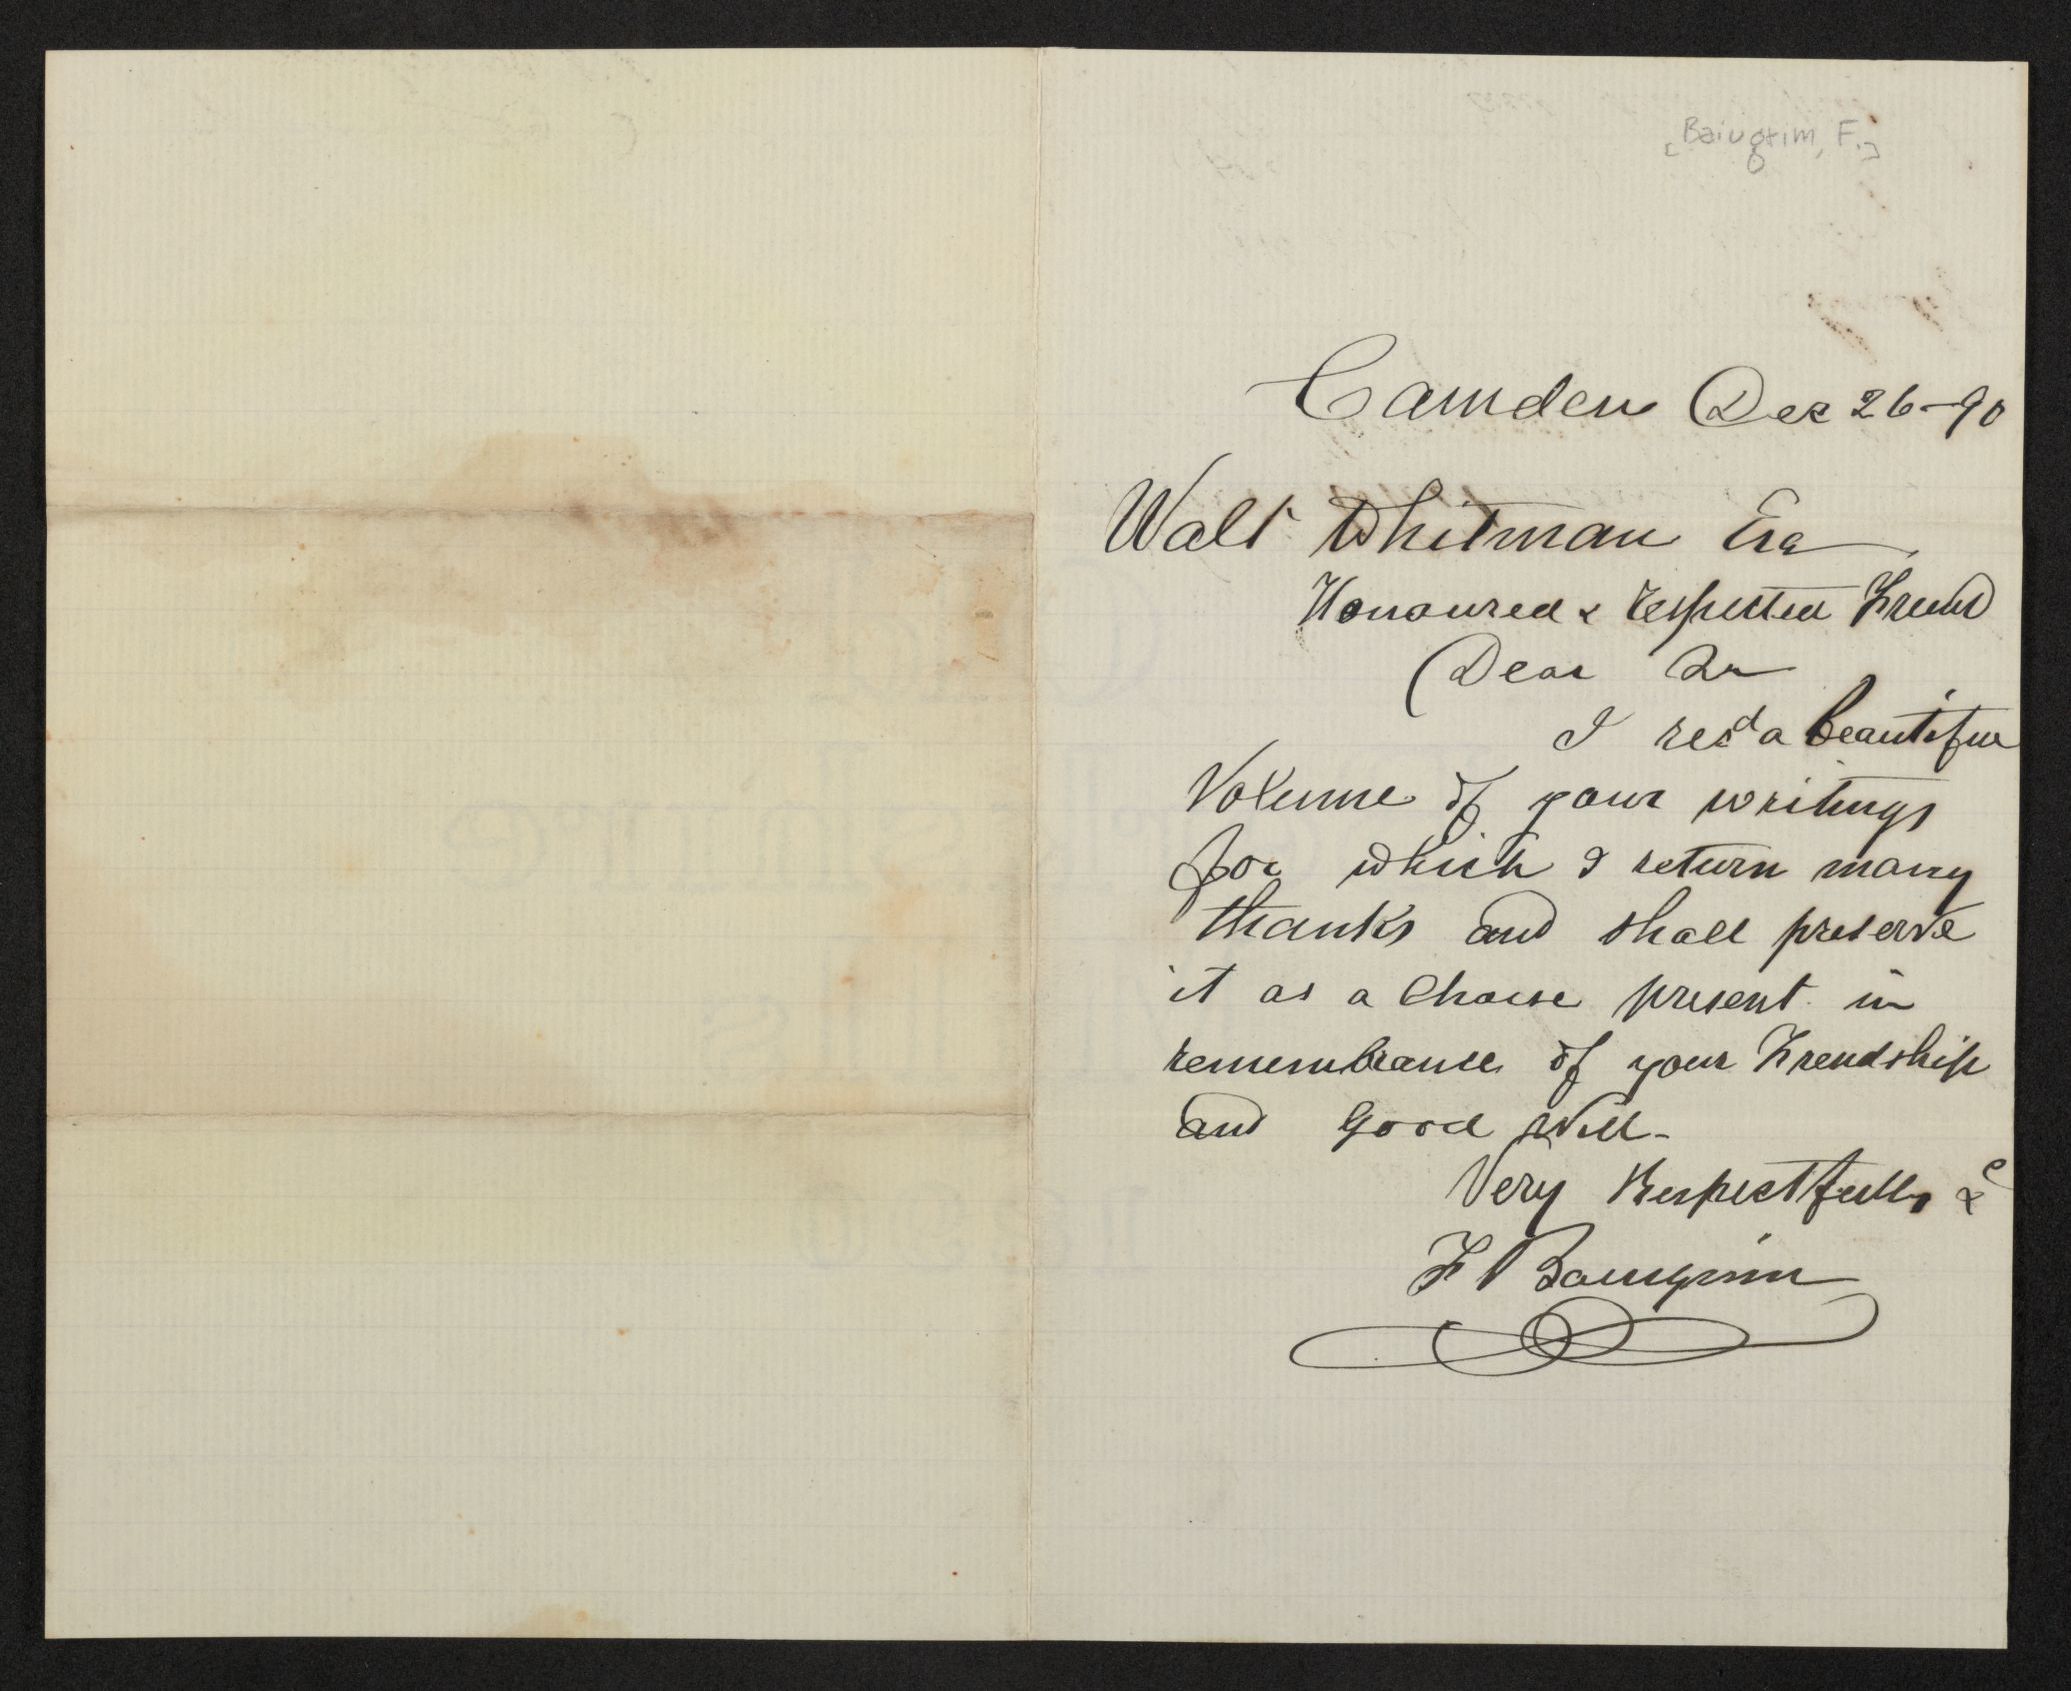 [Baiugrim, F.]
Camden Dec 26-90
Walt Whitman Esq
Honoured & respected Friend
Dear Sir
I recd a beautiful
Volume of your writings
for which I return many
thanks and shall preserve
it as a Choise present in
remembrance of your Frendship
and good Will-
Very Respectfully &c
F Baiugrim